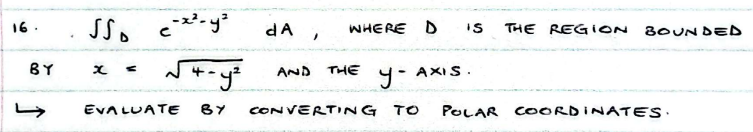 16. ∬_D e^{-x²-y²} dA , WHERE D IS THE REGION BOUNDED
BY x = √(4-y²) AND THE y-AXIS.
↳ EVALUATE BY CONVERTING TO POLAR COORDINATES.